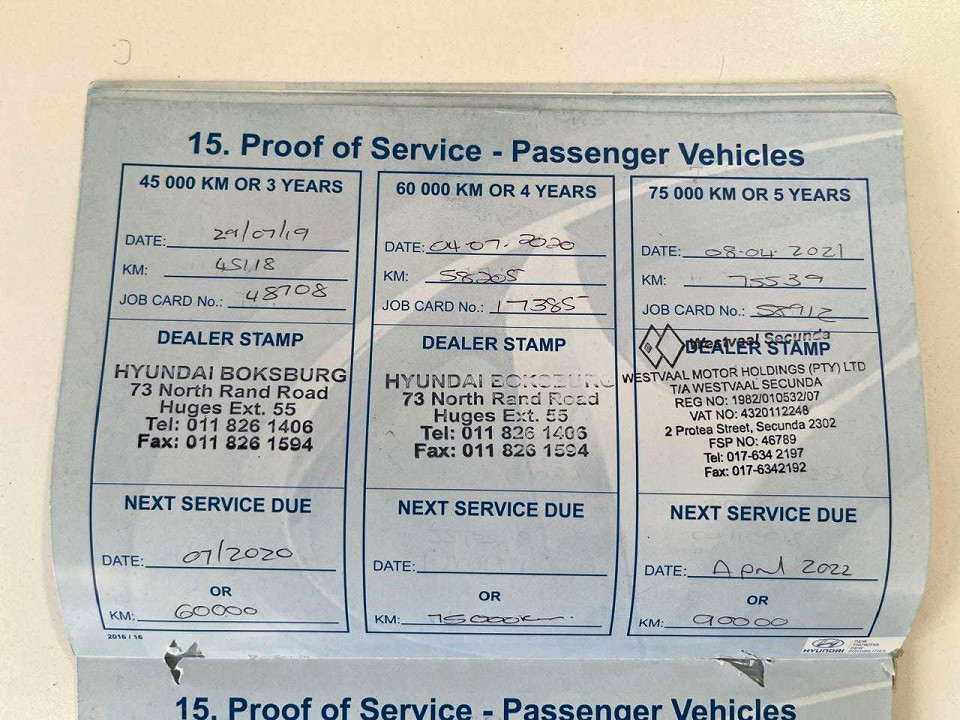 15. Proof of Service - Passenger Vehicles
45 000 KM OR 3 YEARS
DATE: 29/07/19
KM: 45118
JOB CARD No.: 48708
DEALER STAMP
HYUNDAI BOKSBURG
73 North Rand Road
Huges Ext. 55
Tel: 011 826 1406
Fax: 011 826 1594
NEXT SERVICE DUE
DATE: 07/2020
OR
KM: 60000
2016 / 16
60 000 KM OR 4 YEARS
DATE: 04-07-2020
KM: 58205
JOB CARD No.: 17385
DEALER STAMP
HYUNDAI BOKSBURG
73 North Rand Road
Huges Ext. 55
Tel: 011 826 1406
Fax: 011 826 1594
NEXT SERVICE DUE
DATE:
OR
KM: 75000km.
75 000 KM OR 5 YEARS
DATE: 08-04 2021
KM: 75539
JOB CARD No.: 58912
Westvaal Secunda
DEALER STAMP
WESTVAAL MOTOR HOLDINGS (PTY) LTD
T/A WESTVAAL SECUNDA
REG NO: 1982/010532/07
VAT NO: 4320112248
2 Protea Street, Secunda 2302
FSP NO: 46789
Tel: 017-634 2197
Fax: 017-6342192
NEXT SERVICE DUE
DATE: April 2022
OR
KM: 90000
HYUNDAI
NEW
THINKING.
NEW
POSSIBILITIES.
15. Proof of Service - Passenger Vehicles